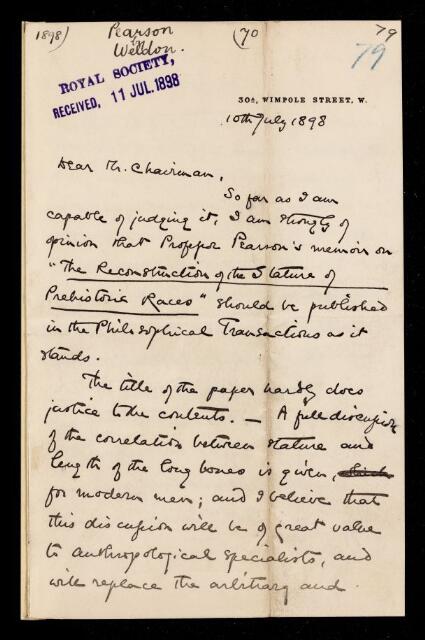 1898)
Pearson
Weldon.
(70
79
79
ROYAL SOCIETY,
RECEIVED, 11 JUL. 1898
30A, WIMPOLE STREET, W.
10th July 1898
Dear Mr. Chairman,
So far as I am
capable of judging it, I am strongly of
opinion that Professor Pearson's memoir on
"The Reconstruction of the Stature of
Prehistoric Races" should be published
in the Philosophical Transactions as it
stands.
The title of the paper hardly does
justice to the contents. — A full discussion
of the correlation between stature and
length of the long bones is given,
for modern men; and I believe that
this discussion will be of great value
to anthropological specialists, and
will replace the arbitrary and